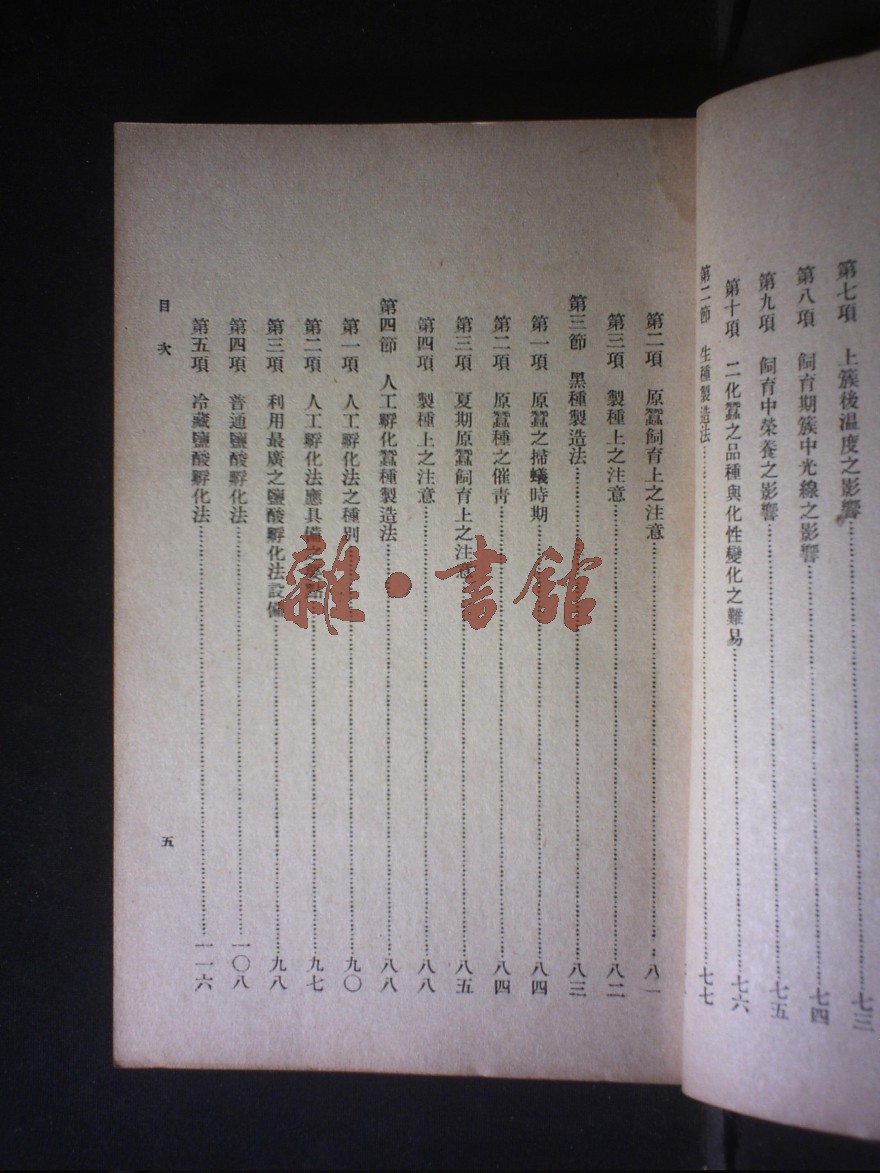 第七項 上簇後溫度之影響……七三
第八項 飼育期簇中光線之影響……七四
第九項 飼育中榮養之影響……七五
第十項 二化蠶之品種與化性變化之難易……七六
第二節 生種製造法……七七
第二項 原蠶飼育上之注意……八一
第三項 製種上之注意……八二
第三節 黑種製造法……八三
第一項 原蠶之掃蟻時期……八四
第二項 原蠶種之催青……八四
第三項 夏期原蠶飼育上之注意……八五
第四項 製種上之注意……八八
第四節 人工孵化蠶種製造法……八八
第一項 人工孵化法之種別……九〇
第二項 人工孵化法應具備之要點……九七
第三項 利用最廣之鹽酸孵化法設備……九八
第四項 普通鹽酸孵化法……一〇八
第五項 冷藏鹽酸孵化法……一一六
目次
五
雜·書館